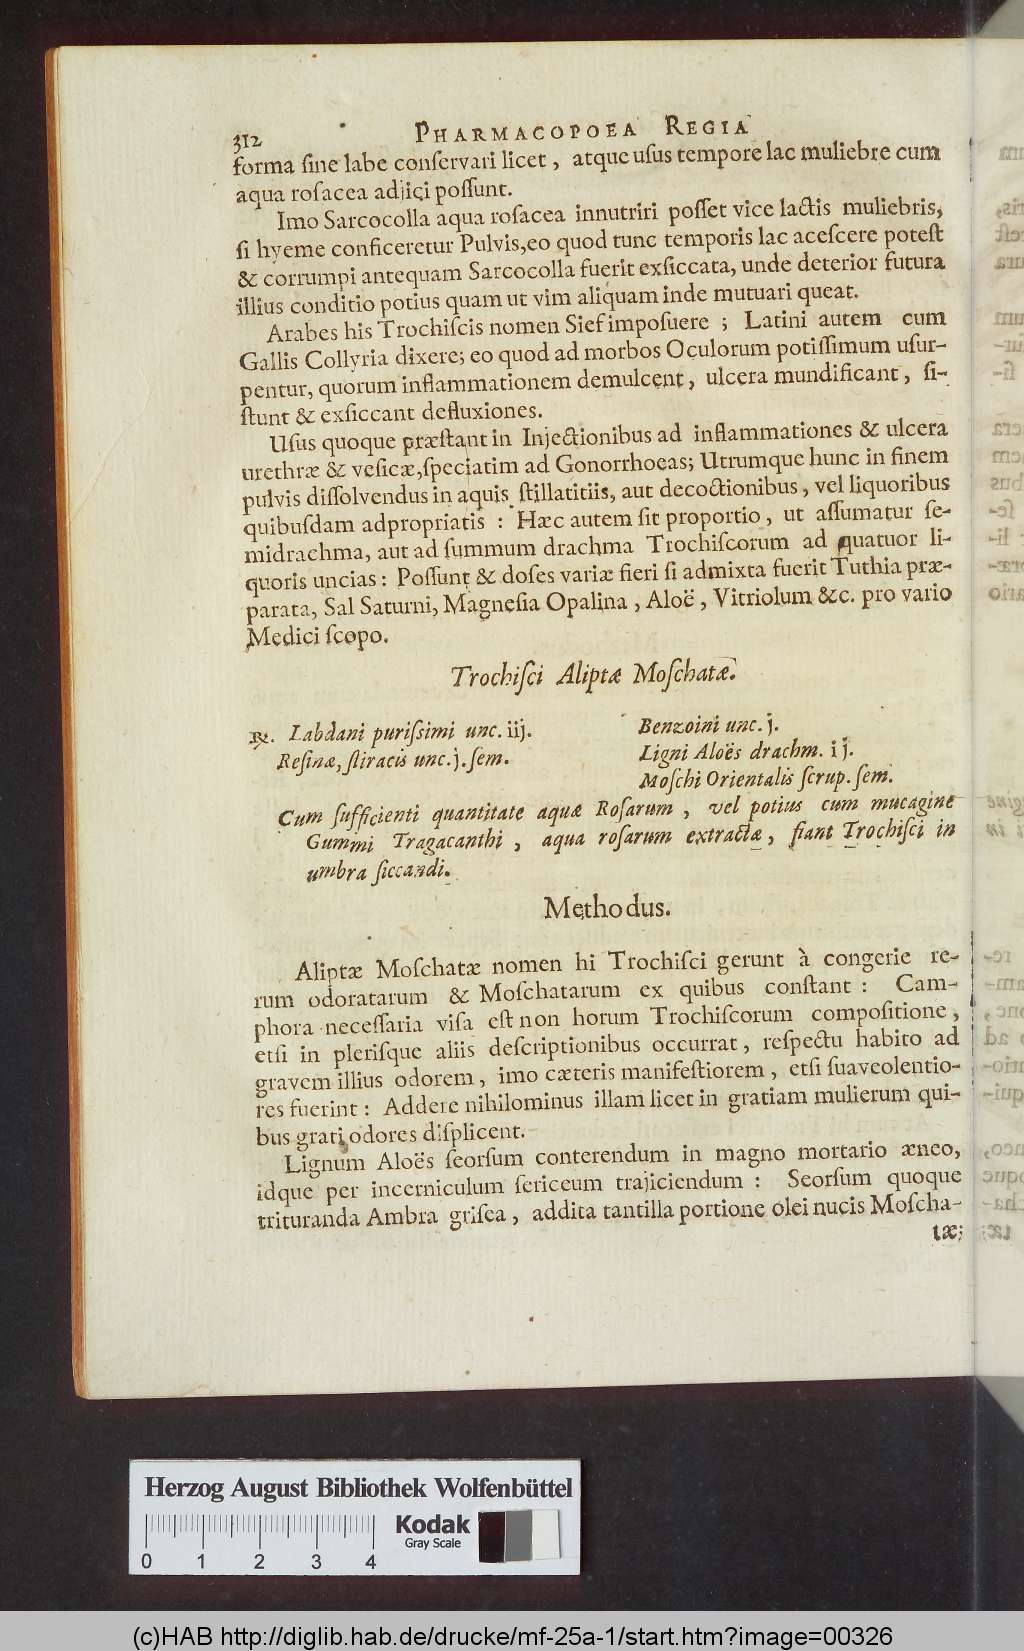 312 PHARMACOPOEA REGIA
forma ſine labe conſervari licet, atque uſus tempore lac muliebre cum
aqua roſacea adjici poſſunt.
Imo Sarcocolla aqua roſacea innutriri poſſet vice lactis muliebris,
ſi hyeme conficeretur Pulvis, eo quod tunc temporis lac aceſcere poteſt
& corrumpi antequam Sarcocolla fuerit exſiccata, unde deterior futura
illius conditio potius quam ut vim aliquam inde mutuari queat.
Arabes his Trochiſcis nomen Sief impoſuere ; Latini autem cum
Gallis Collyria dixere; eo quod ad morbos Oculorum potiſſimum uſur-
pentur, quorum inflammationem demulcent, ulcera mundificant, ſi-
ſtunt & exſiccant defluxiones.
Uſus quoque præſtant in Injectionibus ad inflammationes & ulcera
urethræ & veſicæ, ſpeciatim ad Gonorrhoeas; Utrumque hunc in finem
pulvis diſſolvendus in aquis ſtillatitiis, aut decoctionibus, vel liquoribus
quibuſdam adpropriatis : Hæc autem ſit proportio, ut aſſumatur ſe-
midrachma, aut ad ſummum drachma Trochiſcorum ad quatuor li-
quoris uncias: Poſſunt & doſes variæ fieri ſi admixta fuerit Tuthia præ-
parata, Sal Saturni, Magneſia Opalina, Aloë, Vitriolum &c. pro vario
Medici ſcopo.
Trochiſci Aliptæ Moſchatæ.
℞. Labdani puriſſimi unc. iij.
Reſinæ, ſtiracis unc. j. ſem.
Benzoini unc. j.
Ligni Aloës drachm. ij.
Moſchi Orientalis ſcrup. ſem.
Cum ſufficienti quantitate aquæ Roſarum, vel potius cum mucagine
Gummi Tragacanthi, aqua roſarum extractæ, fiant Trochiſci in
umbra ſiccandi.
Methodus.
Aliptæ Moſchatæ nomen hi Trochiſci gerunt à congerie re-
rum odoratarum & Moſchatarum ex quibus conſtant : Cam-
phora neceſſaria viſa eſt non horum Trochiſcorum compoſitione,
etſi in pleriſque aliis deſcriptionibus occurrat, reſpectu habito ad
gravem illius odorem, imo cæteris manifeſtiorem, etſi ſuaveolentio-
res fuerint : Addere nihilominus illam licet in gratiam mulierum qui-
bus grati odores diſplicent.
Lignum Aloës ſeorſum conterendum in magno mortario æneo,
idque per incerniculum ſericeum trajiciendum : Seorſum quoque
trituranda Ambra griſea, addita tantilla portione olei nucis Moſcha-
tæ;
Herzog August Bibliothek Wolfenbüttel
0 1 2 3 4
Kodak
Gray Scale
(c)HAB http://diglib.hab.de/drucke/mf-25a-1/start.htm?image=00326